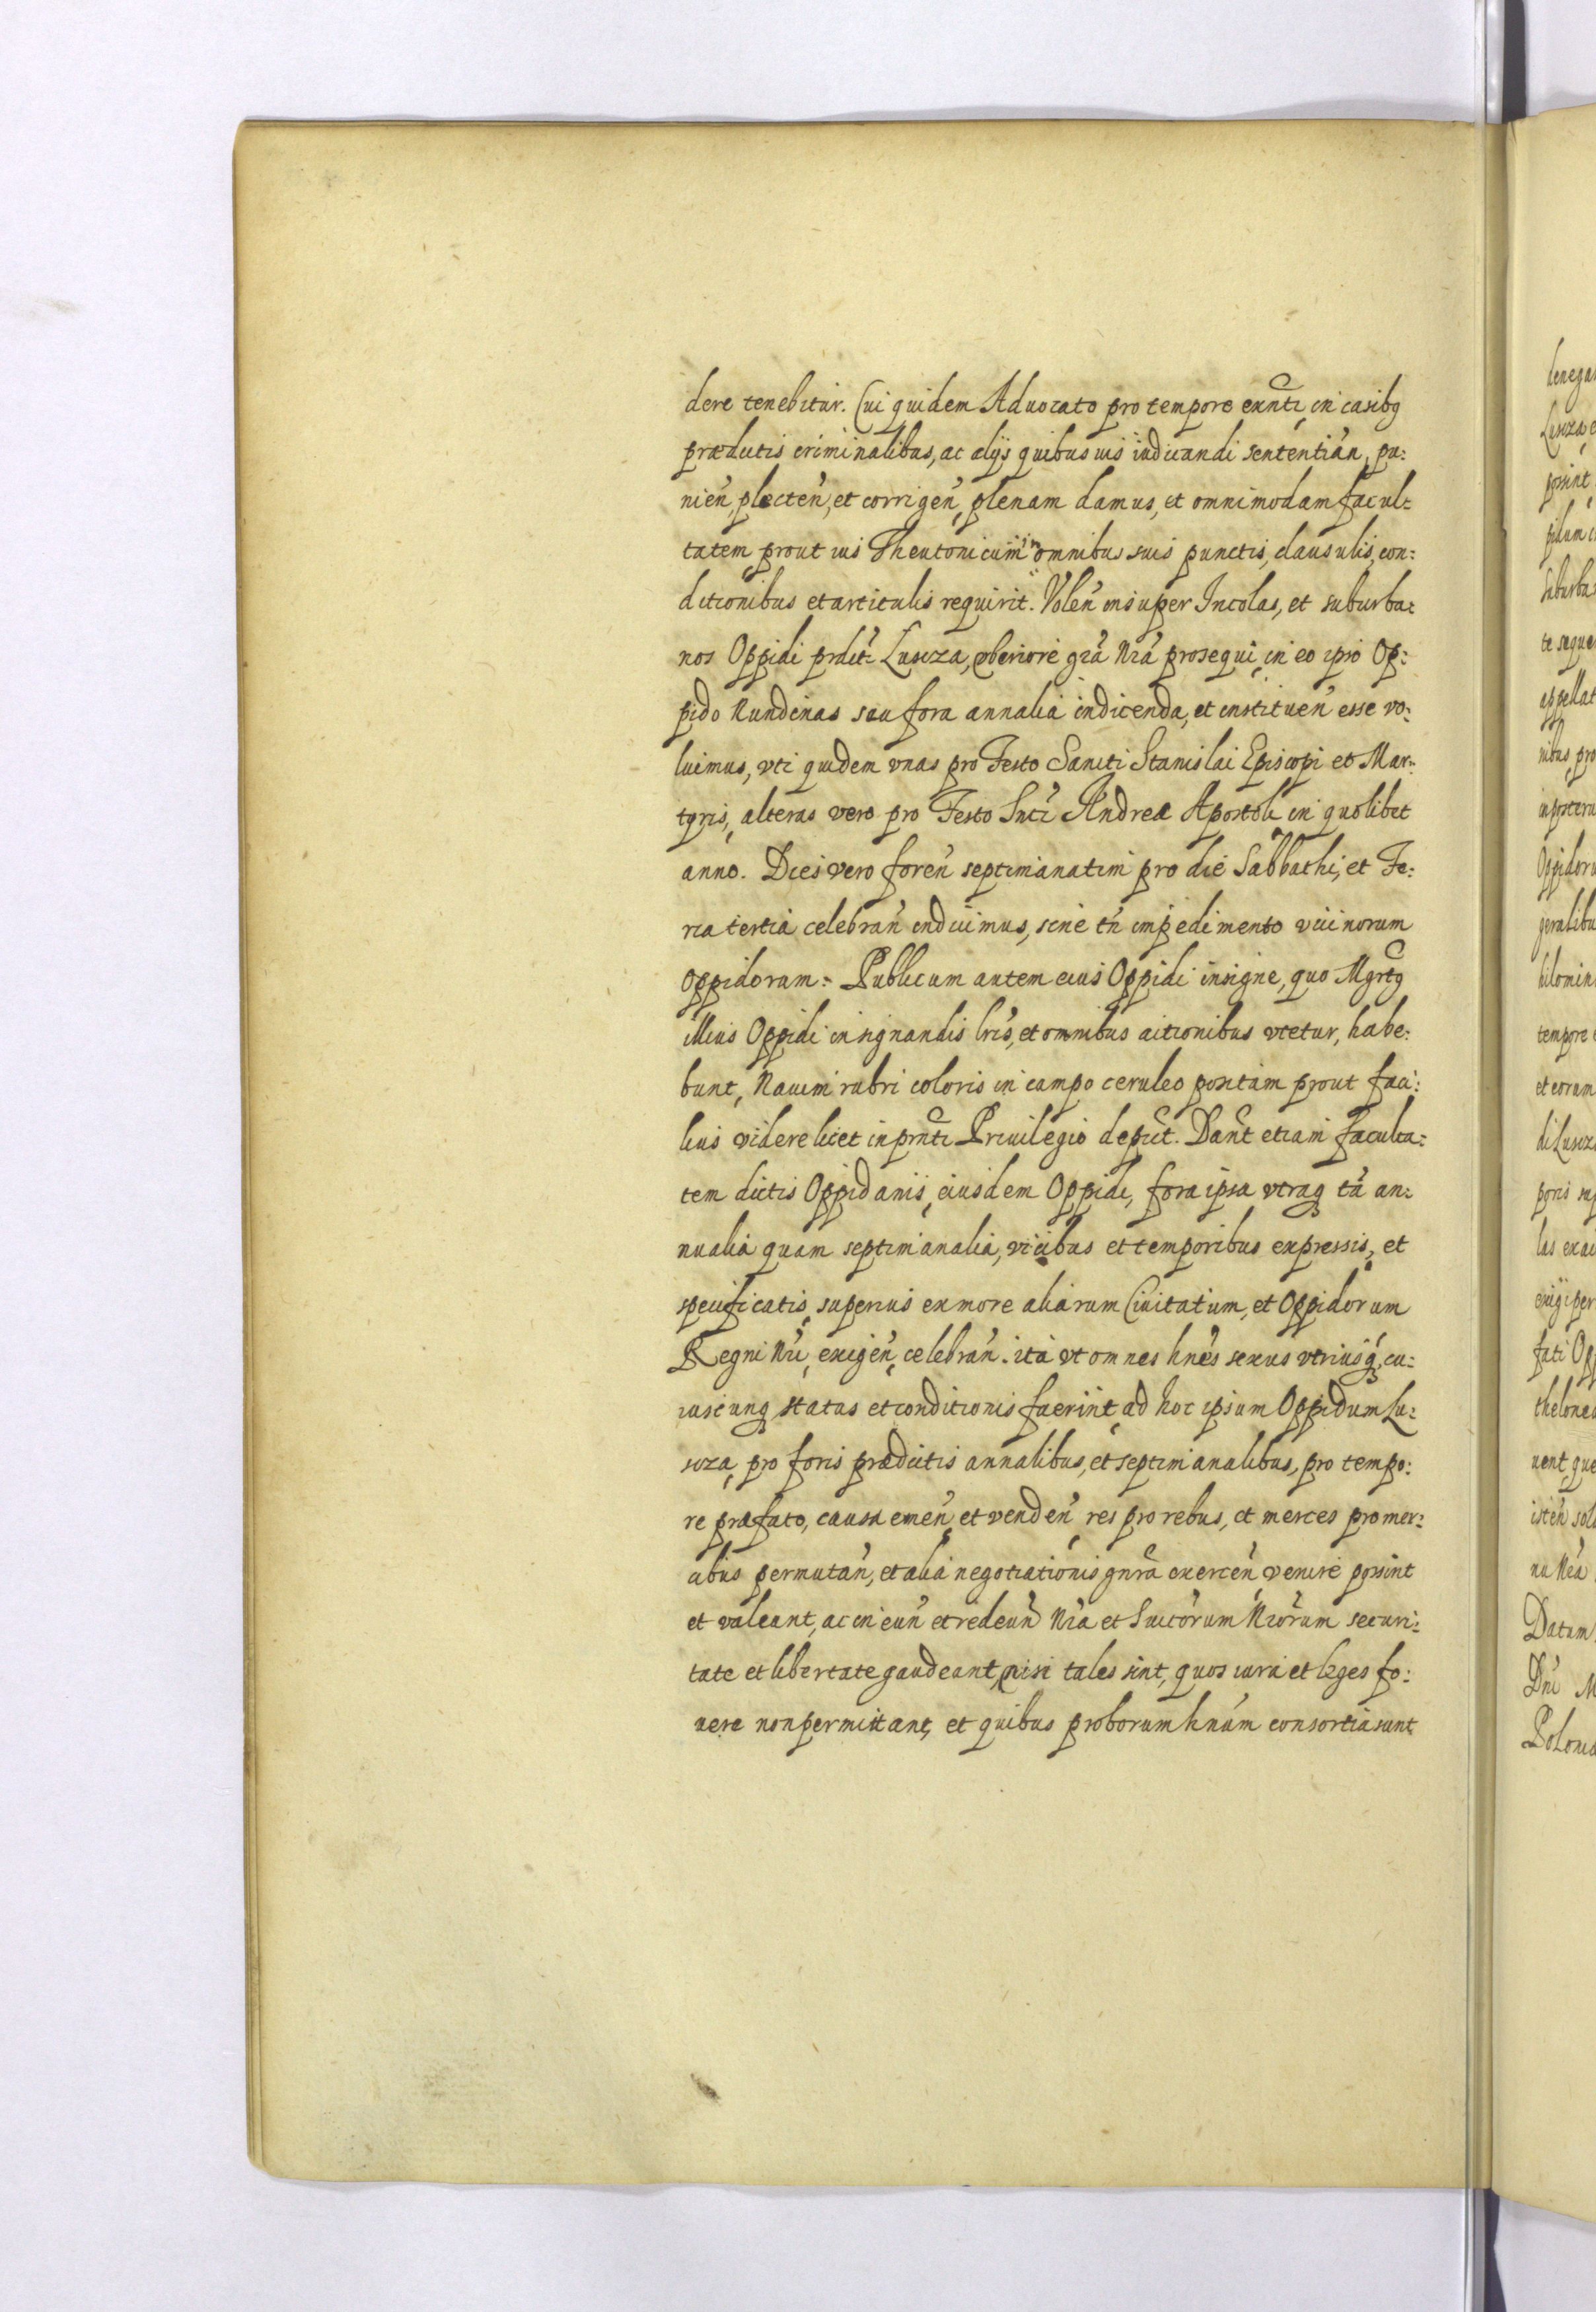 dere tenebitur. Cui quidem Aduocato pro tempore exñti, in casibq
prædictis criminalibus, ac alijs quibusuis iudicandi sententiañ, pu:
nieñ, plecteñ, et corrigeñ, plenam damus, et omnimodam facul:
tatem prout ius Theutonicum in omnibus suis punctis, clausulis, con:
ditionibus et articulis requirit. Voleñ insuper Incolas, et suburba:
nos Oppidi prdcti Luscza, vberiore gra Nra prosequi, in eo ipso Op:
pido Nundinas seu fora annalia indicenda, et instituen esse vo:
luimus, vti quidem vnas pro Festo Sancti Stanislai Episcopi et Mar:
tyris, alteras vero pro Festo Scti Andreæ Apostoli, in quolibet
anno. Dies vero foreñ septimanatim pro die Sabbathi, et Fe:
ria tertia celebrañ indicimus, sine tñ impedimento vicinorum
oppidorum: Publicum autem eius Oppidi insigne, quo Mgrtq
illius Oppidi in signandis lris, et omnibus actionibus vtetur, habe:
bunt, Nauim rubri coloris in campo ceruleo positam prout faci:
lius videre licet in prnti Priuilegio depict. Dant etiam faculta:
tem dictis Oppidanis, eiusdem Oppidi, fora ipsa vtraq tã an:
nualia quam septimanalia, vicibus et temporibus expressis, et
specificatis, superius ex more aliarum Ciuitatum, et Oppidorum
Regni Nri, exigeñ, celebrañ. ita vt omnes hnes sexus vtriusq, cu:
iuscunq status et conditionis fuerint, ad hoc ipsum Oppidum Lu:
scza, pro foris prædictis annalibus, et septimanalibus, pro tempo:
re præfato, causa emeñ, et vendeñ res pro rebus, et merces pro mer:
cibus permutañ, et alia negotiationis gnra exerceñ, venire possint
et valeant, ac in euñ et redeuñ Nra et Succorum Nrorum securi:
tate et libertate gaudeant, nisi tales sint, quos iura et leges fo:
uere non permittant, et quibus proborum hnum consortia sunt